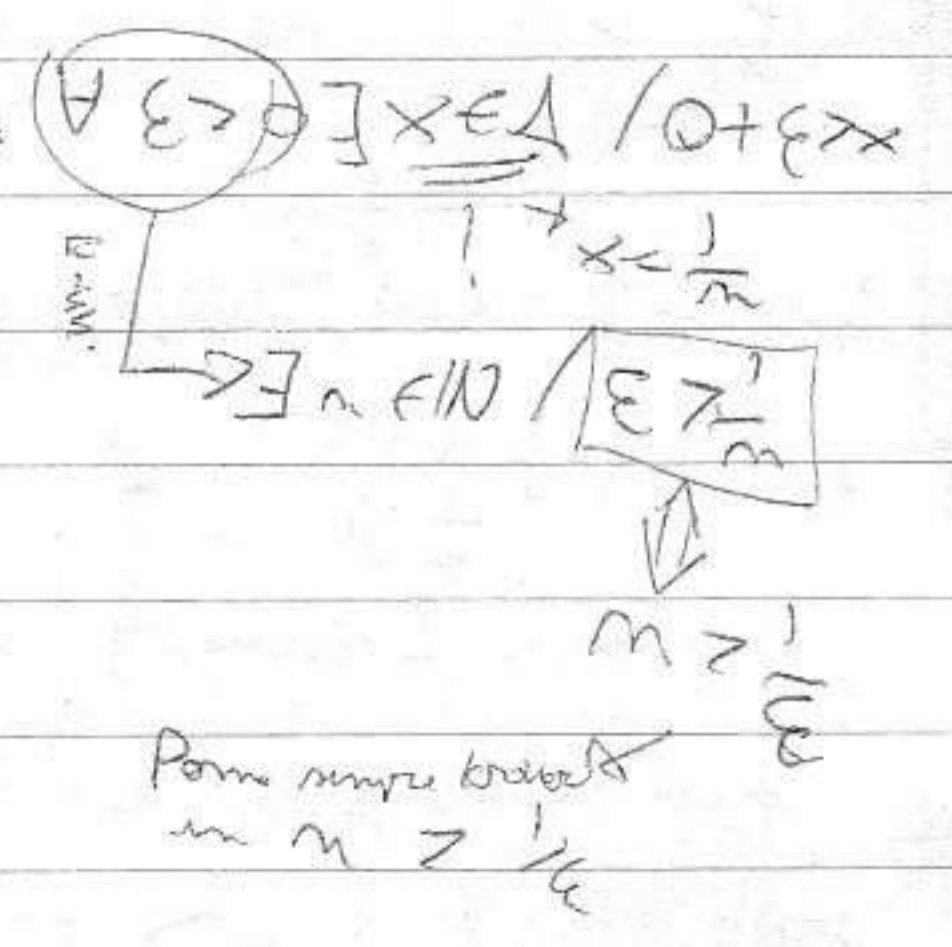 ∀ ε > 0 ∃ x ∈ A / 0 + ε > x
? → x = 1/n
→ ∃ n ∈ ℕ / 1/n < ε
⇕
n > 1/ε
Posso sempre trovare
un n > 1/ε